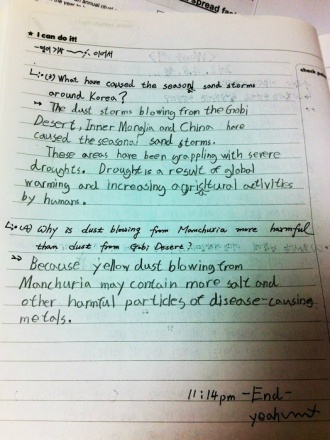 spread fa
★ I can do it!
이어서
(3) What have caused the season sand storms
around Korea?
The dust storms blowing from the Gobi
Desert, Inner Monglia and China have
caused the seasonal sand storms.
These areas have been grappling with severe
droughts. Drought is a result of global
warming and increasing agricltural activities
by humans.
(4) Why is dust blowing from Manchuria more harmful
than dust from Gobi Desert?
Because yellow dust blowing from
Manchuria may contain more salt and
other harmful particles of disease-causing
metals.
11:14pm -End-